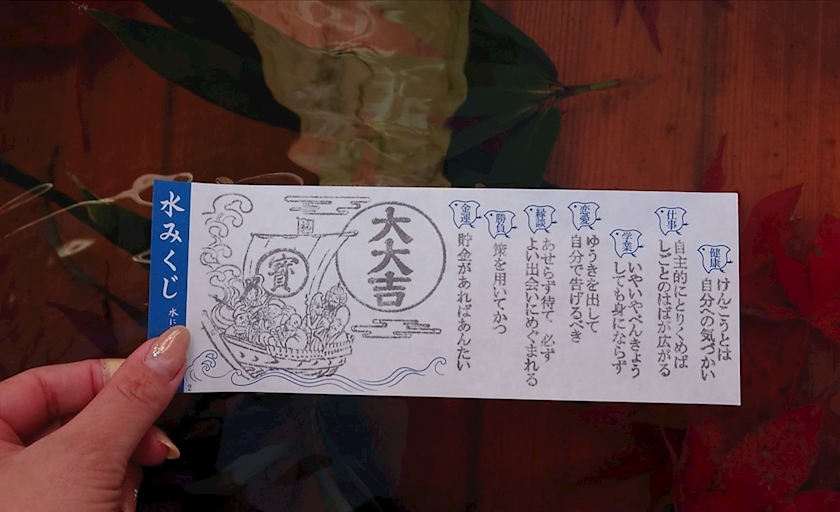 健康
けんこうとは
自分への気づかい
仕事
自主的にとりくめば
しごとのはばが広がる
学業
いやいやべんきょう
しても身にならず
恋愛
ゆうきを出して
自分で告げるべき
縁談
あせらず待て 必ず
よい出会いにめぐまれる
勝負
策を用いてかつ
金運
貯金があればあんたい
大大吉
寳
水みくじ
水に
2